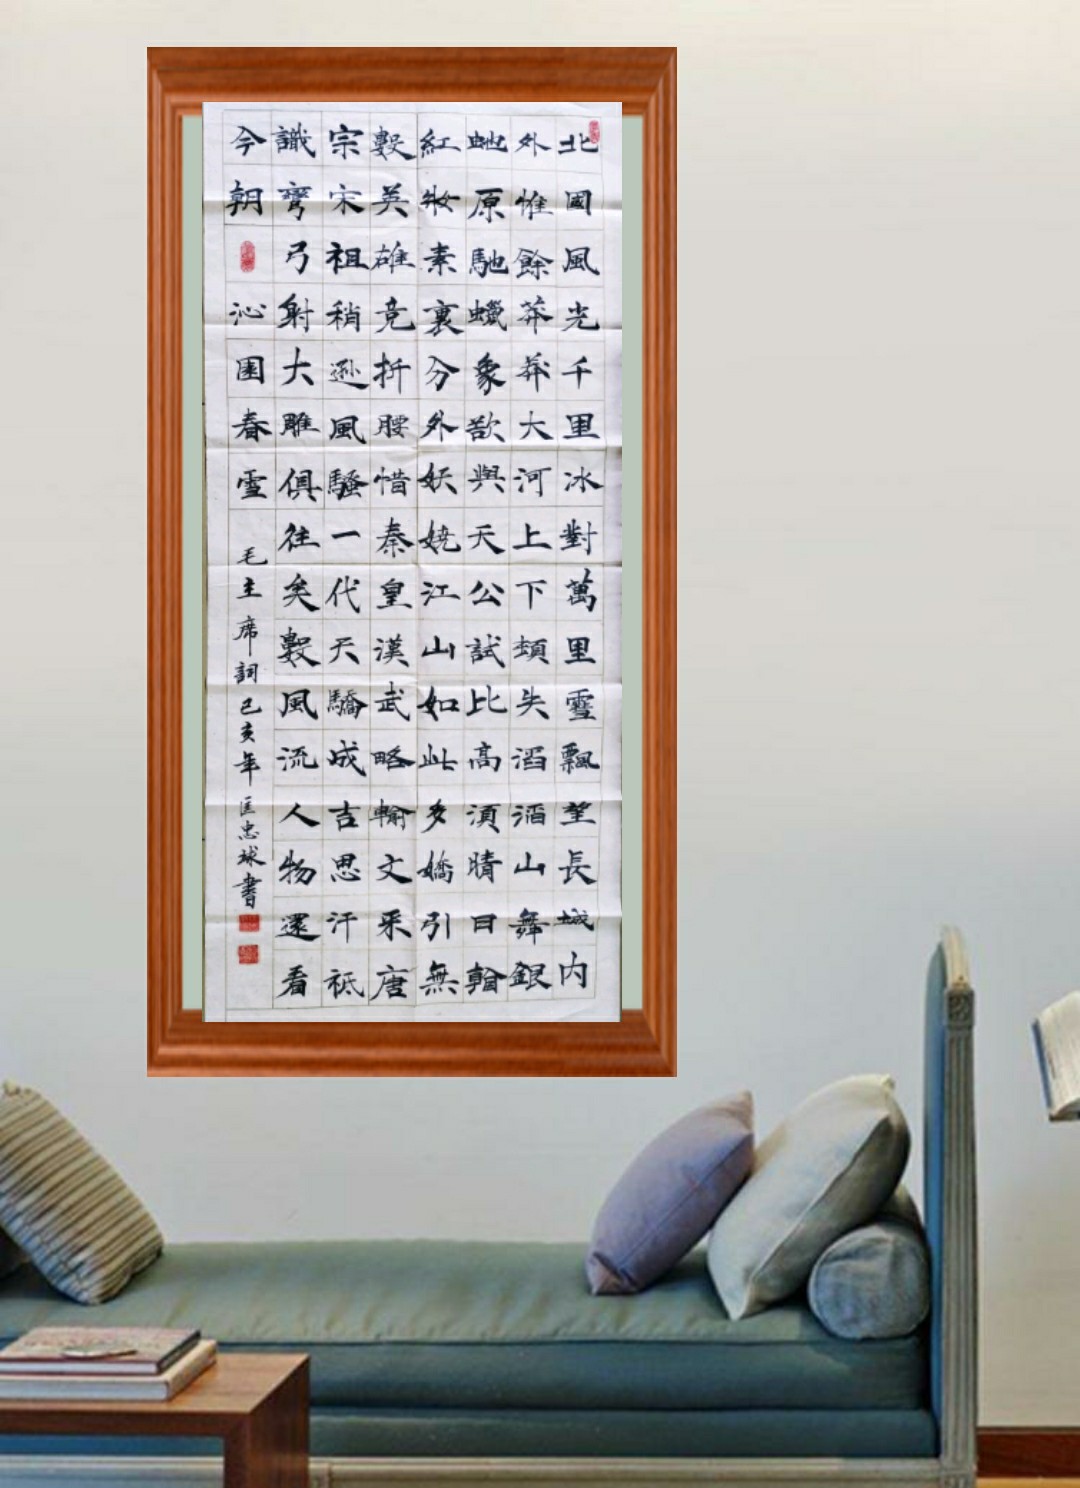 北國風光千里冰對萬里雪飄望長城内
外惟餘莽莽大河上下頓失滔滔山舞銀
虵原馳蠟象欲與天公試比高須晴日
紅妝素裹分外妖嬈江山如此多嬌引無
數英雄竞折腰惜秦皇漢武略輸文采唐
宗宋祖稍遜風騷一代天驕成吉思汗祗
識彎弓射大雕俱往矣數風流人物還看
今朝 沁園春雪 毛主席詞己亥年匡忠球書